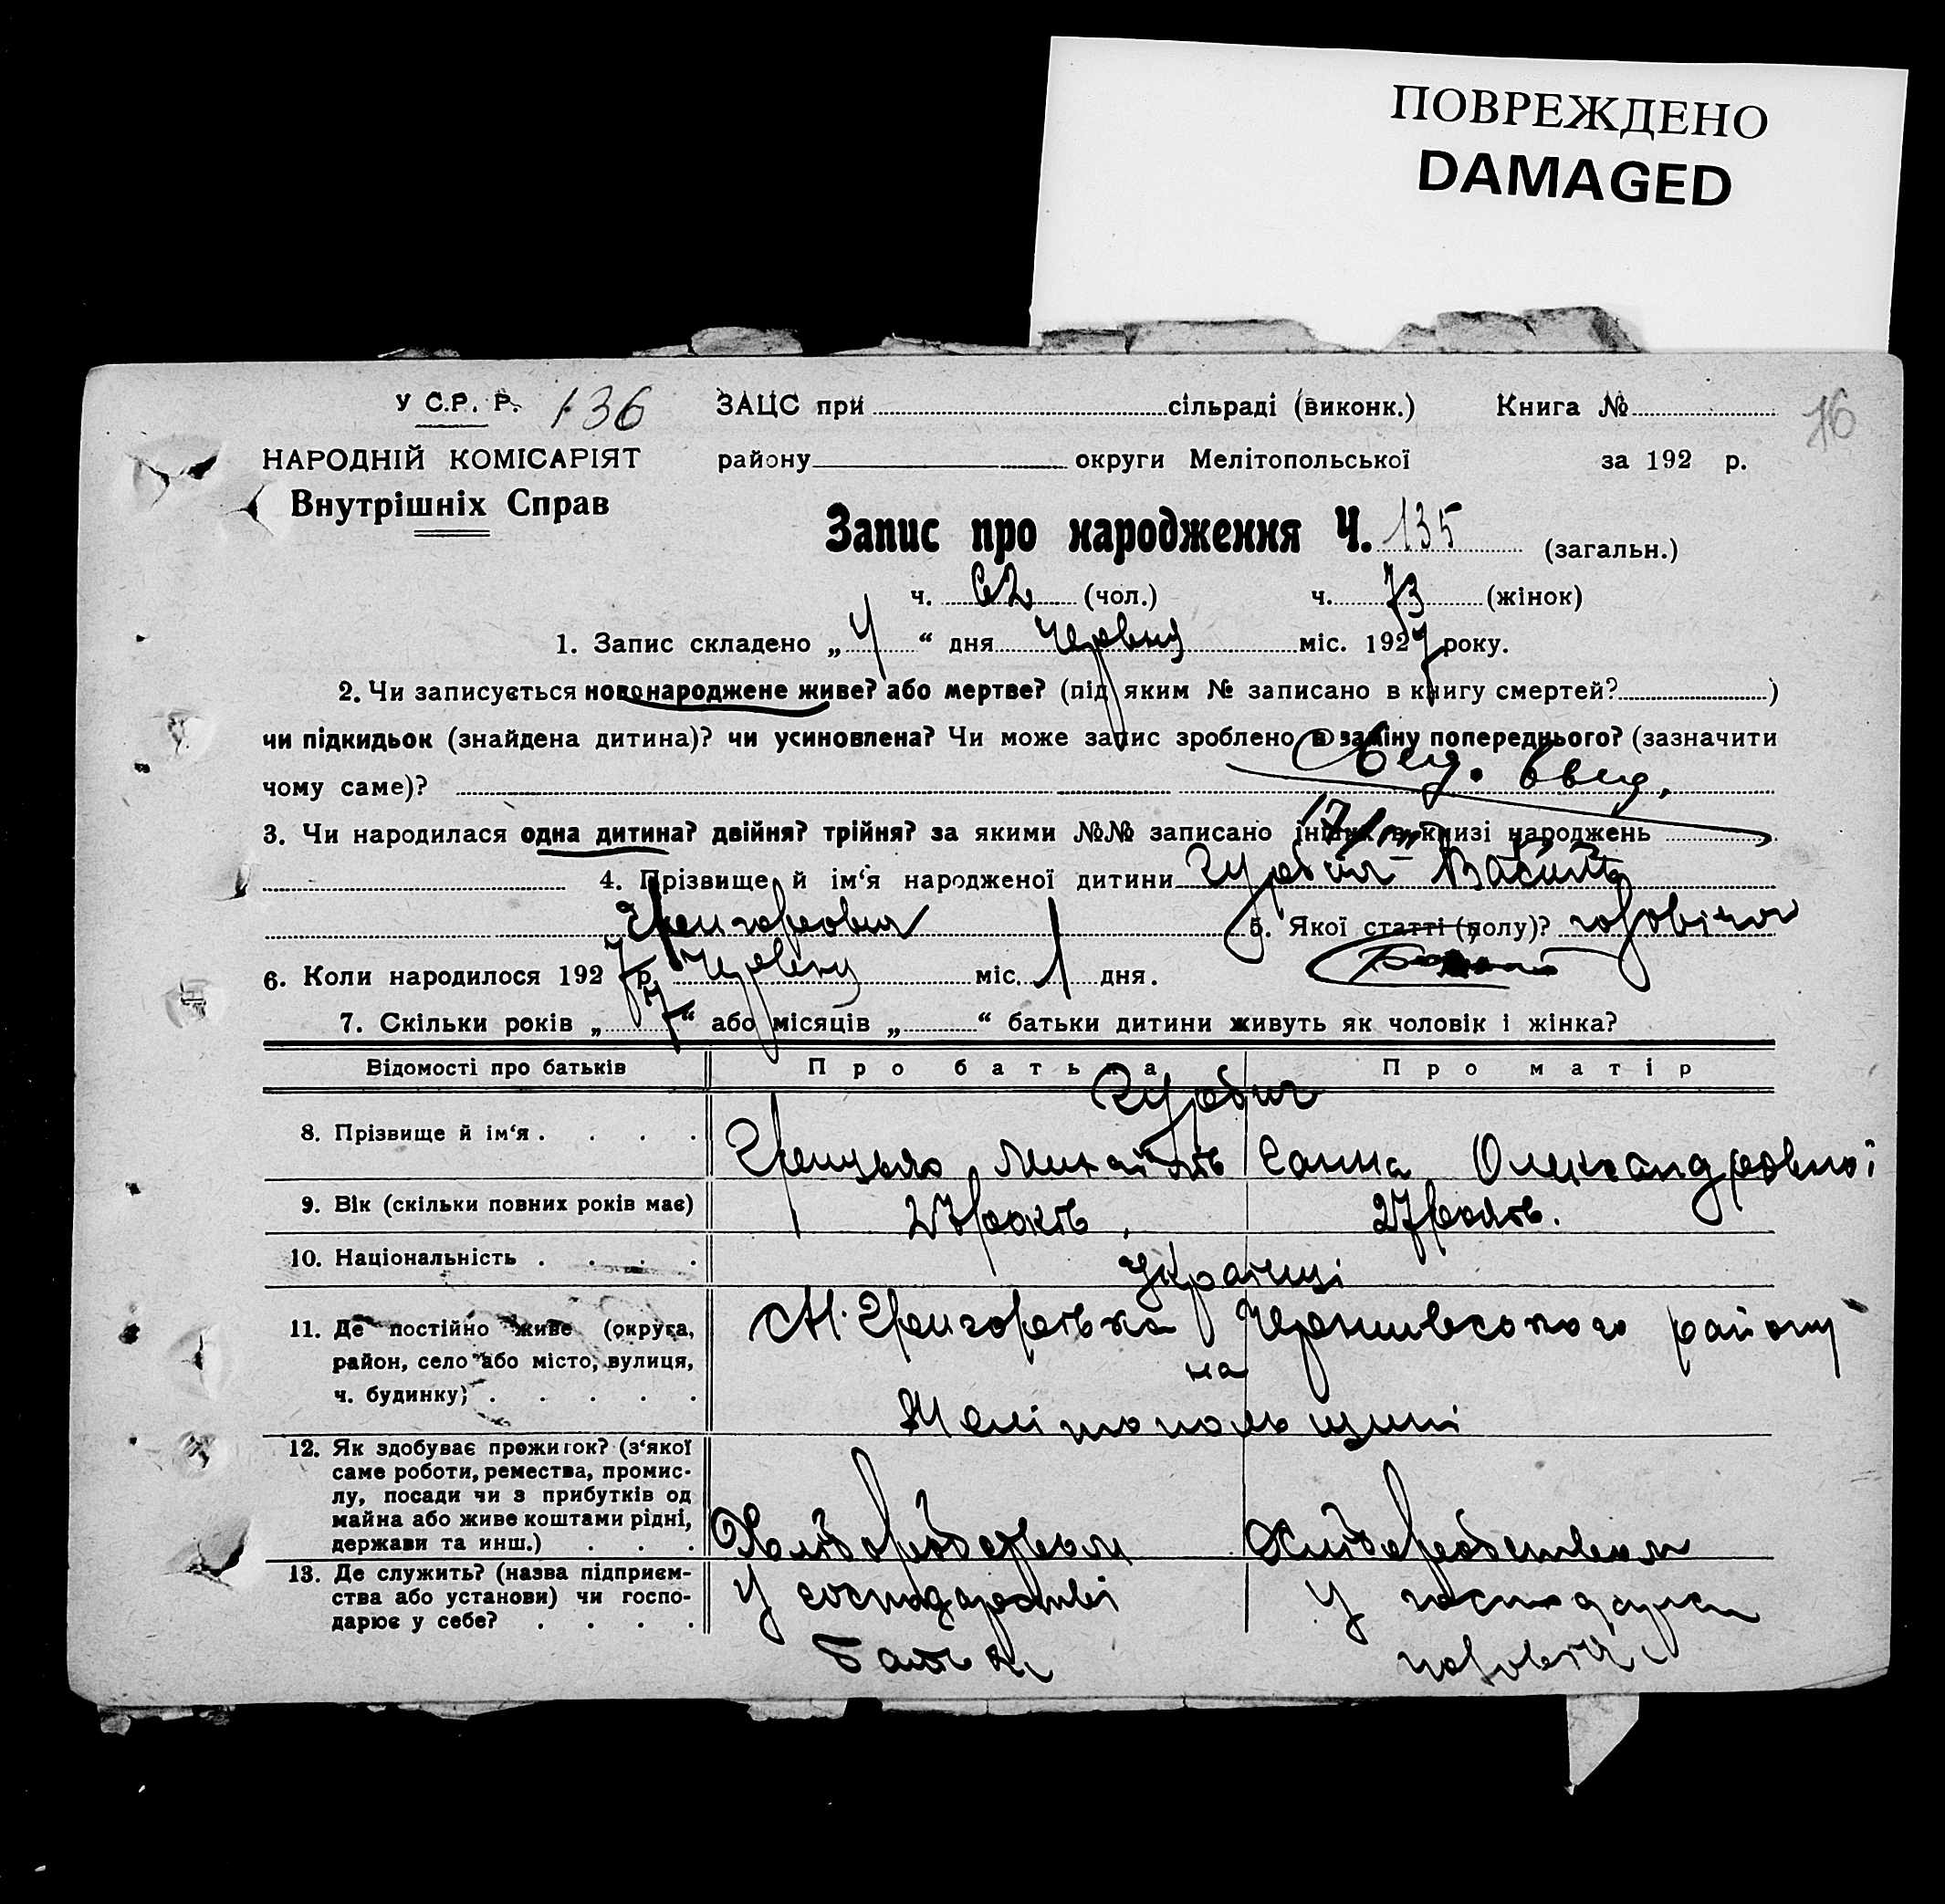 ПОВРЕЖДЕНО
DAMAGED
У С.Р. Р. 136 ЗАЦС при сільраді (виконк.) Книга № 16
НАРОДНІЙ КОМІСАРІЯТ району округи Мелітопольської за 192 р.
Внутрішніх Справ
Запис про народження Ч. 135 (загальн.)
ч. 62 (чол.) ч. 73 (жінок)
1. Запис складено „ 4 “ дня червня міс. 1927 року.
2. Чи записується новонароджене живе? або мертве? (під яким № записано в книгу смертей? )
чи підкидьок (знайдена дитина)? чи усиновлена? Чи може запис зроблено в заміну попереднього? (зазначити
чому саме)?
3. Чи народилася одна дитина? двійня? трійня? за якими №№ записано інших в книзі народжень
4. Прізвище й ім‘я народженої дитини
5. Якої статті (полу)?
6. Коли народилося 1927 р. червня міс. 1 дня.
7. Скільки років „ 7 “ або місяців „ “ батьки дитини живуть як чоловік і жінка?
Відомості про батьків Про батька Про матір
8. Прізвище й ім‘я . . . . Олександровной
9. Вік (скільки повних років має) 27 років 27 років.
10. Національність . . . . Українці
11. Де постійно живе (округа, район, село або місто, вулиця, ч. будинку) . . . . . М. Григорівка Чернигівського району
на
Мелітопольщині
12. Як здобуває прожиток? (з‘якої саме роботи, ремества, промислу, посади чи з прибутків од майна або живе коштами рідні, держави та инш.) . . . Хліборобством Хліборобством
13. Де служить? (назва підприємства або установи) чи господарює у себе? . . . . У господарстві У
Батька